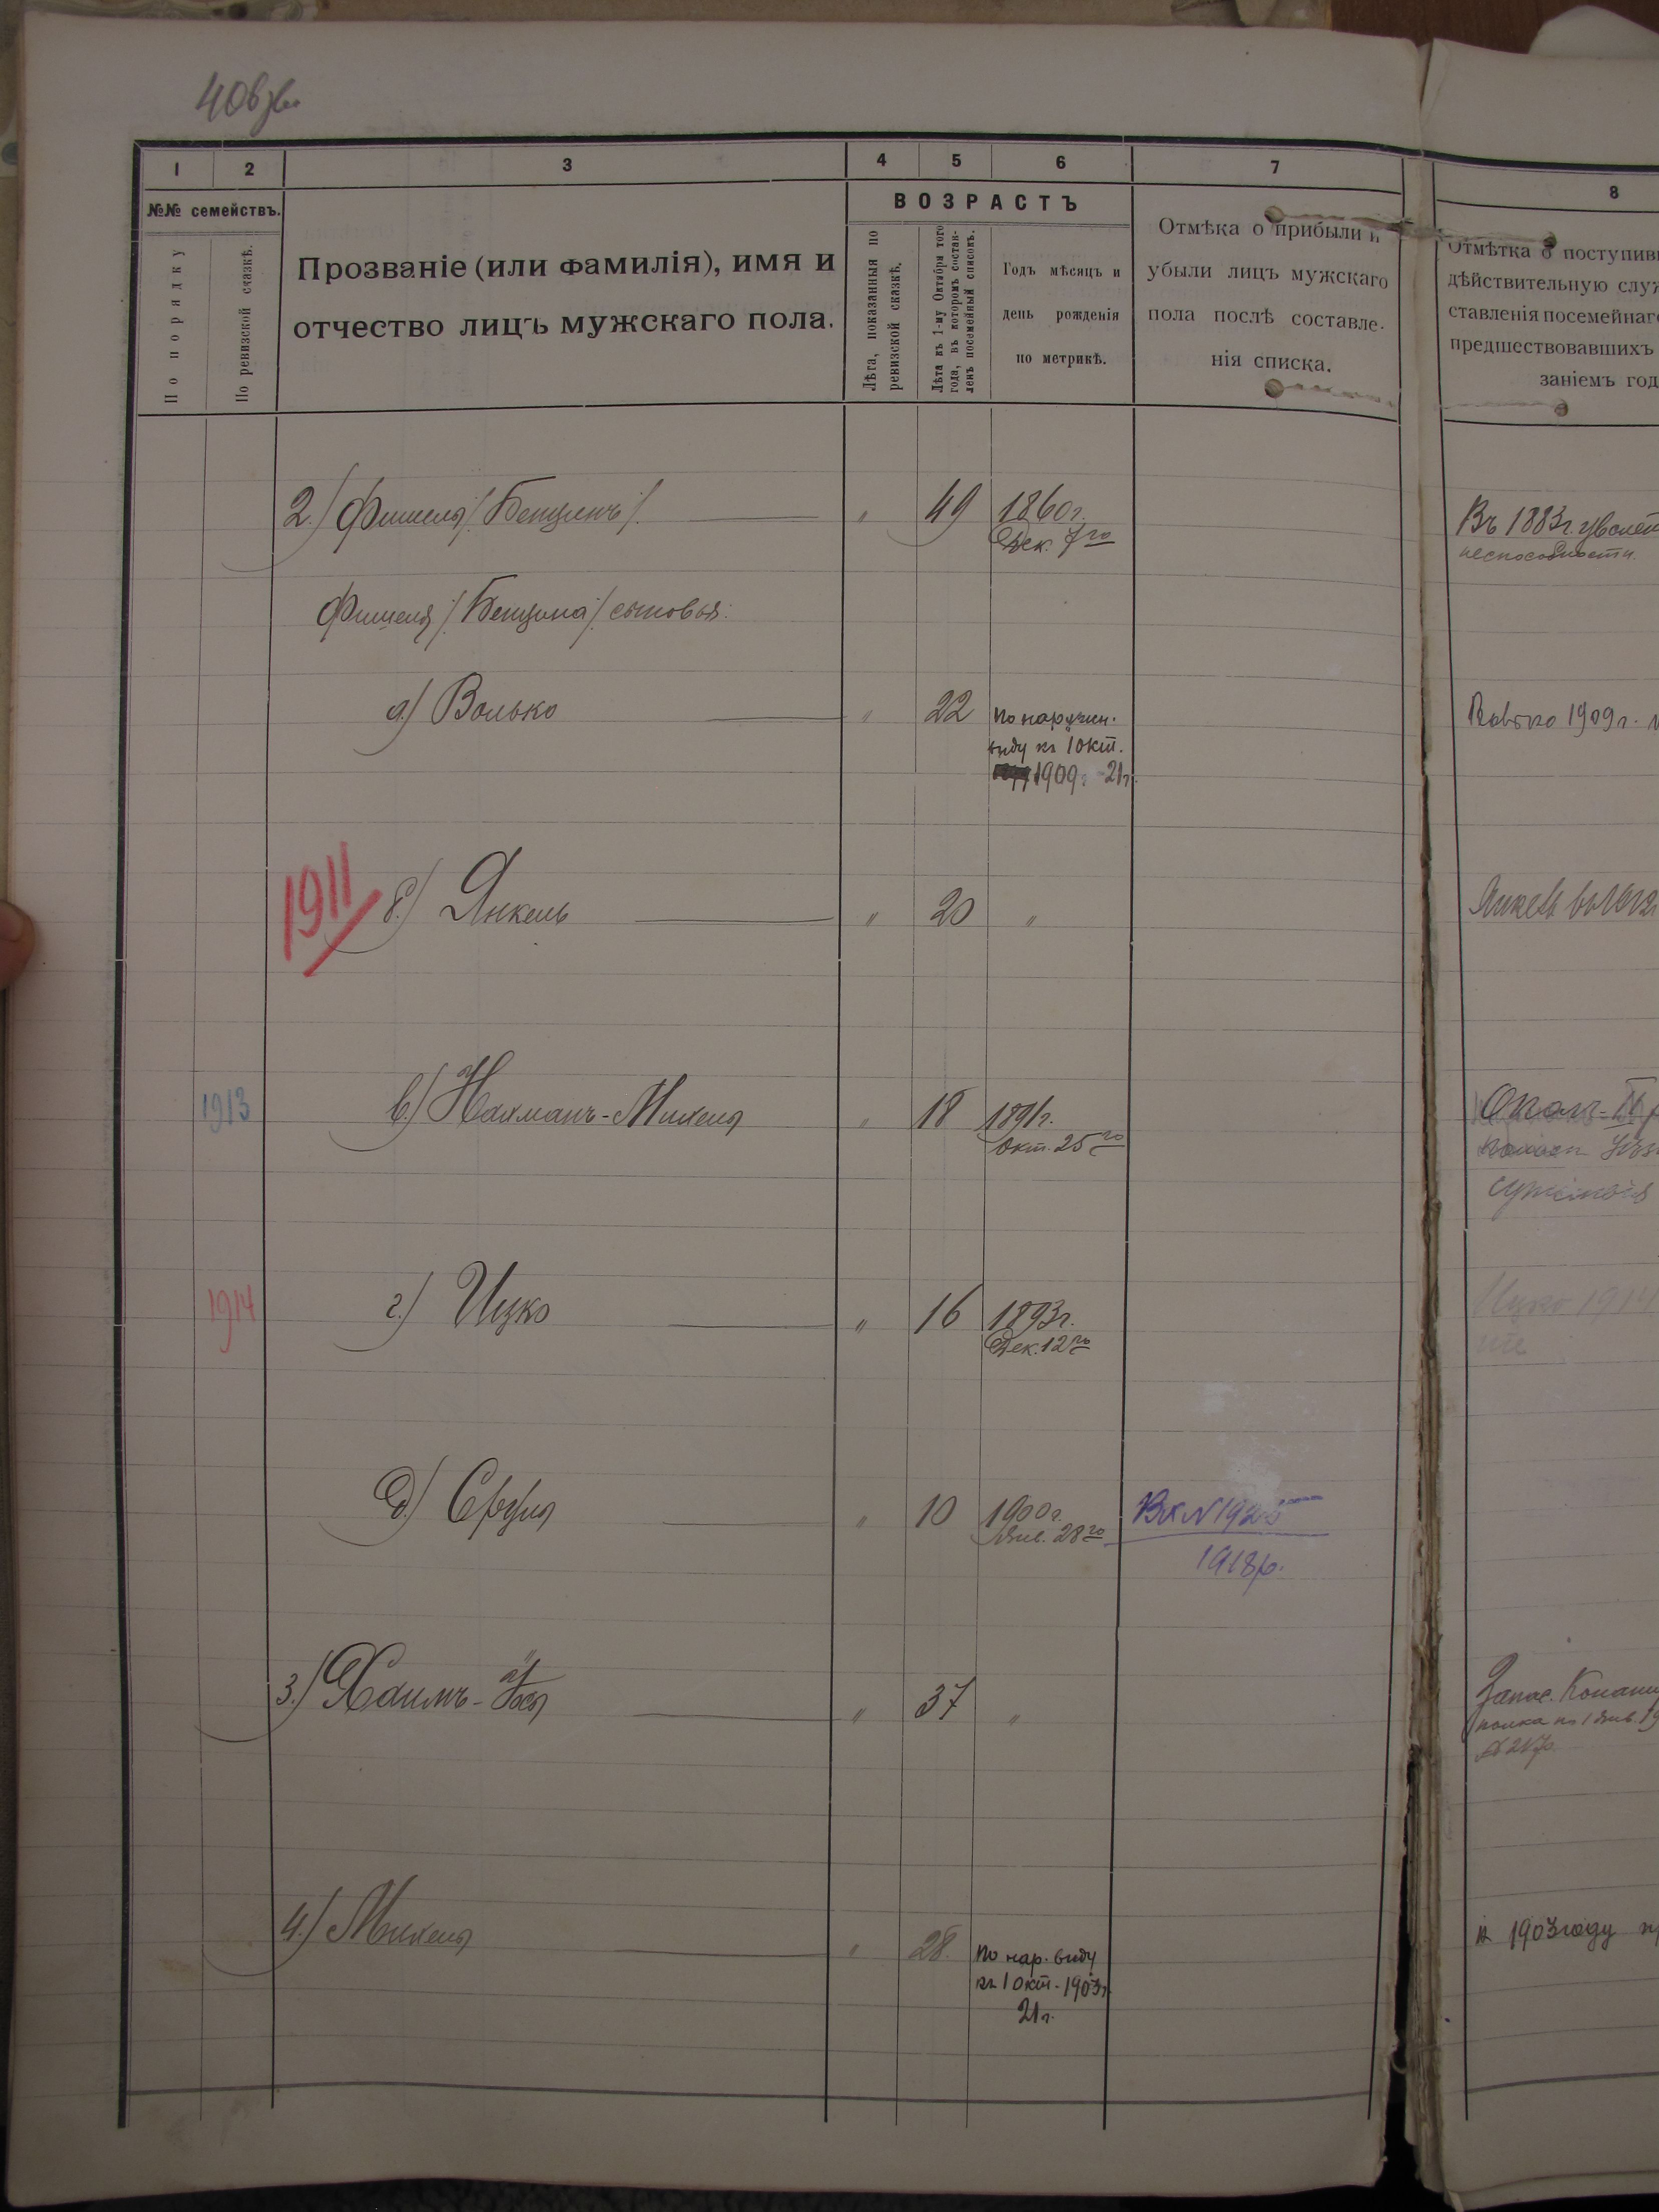 406
1 2 3 4 5 6 7 8
№№ семействъ.
По порядку
По ревизской сказкѣ.
Прозваніе (или фамилія), имя и
отчество лицъ мужскаго пола.
ВОЗРАСТЪ
Лѣта, показанныя по
ревизской сказкѣ.
Лѣта къ 1-му Октября того
года, въ которомъ состав-
ленъ посемейный списокъ.
Годъ мѣсяцъ и
день рожденія
по метрикѣ.
Отмѣка о прибыли и
убыли лицъ мужскаго
пола послѣ составле-
нія списка.
Отмѣтка о поступив
дѣйствительную служ
ставленія посемейнаго
предшествовавшихъ
заніемъ год
2.) Фишель /Бенціонъ/. " 49 1860г.
Дек. 7го
Въ 1883г. уволен
неспособности.
Фишеля /Бенціона/ сыновья:
а) Волько " 22 по наружн.
виду къ 1 окт.
1909г. 21г.
Волько 1909г.
1911 б.) Янкель " 20 "
Янкель
1913 в.) Нахманъ-Михель " 18 1891г.
Окт. 25го
1914 г.) Ицко " 16 1893г.
Дек. 12го
Ицко 1914
д.) Сруль " 10 1900г.
Янв. 28го
1918р.
3.) Хаимъ- " 37 "
Запас.
полка по 1 янв. 19
4.) Михель " 28. по нар. виду
къ 1 окт. 1903г.
21г.
въ 1903 году